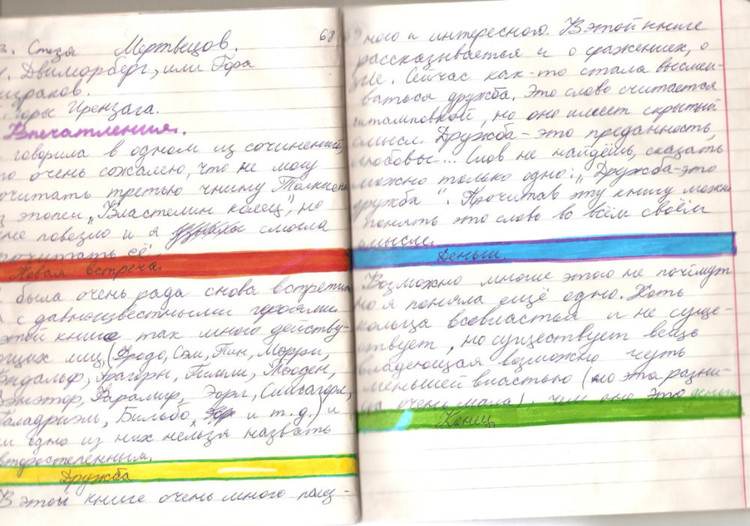 3. Стезя Мертвецов.
68
Двиморберг, или Гора
призраков.
Горы Иренzага.
Впечатления.
говорила в одном из сочинений,
что очень сожалею, что не могу
прочитать третью чнигу Толкиена
из эпопеи „Властелин колец", но
мне повезло и я смогла
прочитать её.
Новая встреча.
Я была очень рада снова встретиться
с давноизвестными героями
этой книге так много действу-
ющих лиц, (Фродо, Сэм, Пин, Мерри,
Гэндальф, Арагорн, Гимли, Теоден,
Дэнэтор, Фарамир, Эорл, Смеагорл,
Галадриэль, Бильбо, и т.д.) и
ни одно из них нельзя назвать
второстепенным.
Дружба
В этой книге очень много глаз-
ного и интересного. В этой книге
рассказывается и о сражениях, о
Сейчас как-то стала высмеи-
ваться дружба. Это слово считается
штамповкой, но оно имеет скрытый
смысл. Дружба - это преданность,
любовь... Слов не найдёшь, сказать
можно только одно: „Дружба-это
дружба". Прочитав эту книгу можно
понять это слово во всём своём
смысле.
Деньги.
Возможно многие этого не поймут
но я поняла ещё одно. Хоть
кольца всевластья и не суще-
ствует, но существует вещь
владеющая возможно чуть
меньшей властью (но эта разни-
ца очень мала), чем оно это деньги
Конец